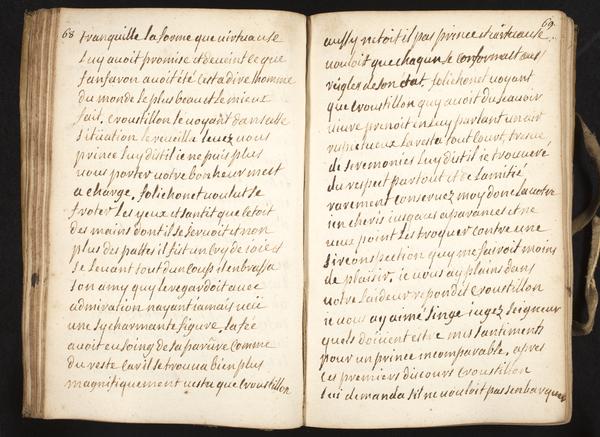 68
tranquille la forme que virtuause
luy avoit promise et devient ce que
fanfaron avoit été cest a dire lhomme
du monde le plus beau et le mieux
fait. Croustillon le voyant dans cette
situation le reueilla leuez uous
prince luy dist il ie ne puis plus
uous porter uotre bonheur meut
a charge. folichonet voulut se
froter les yeux et santit que cetoit
des mains dont il se servoit et non
plus des pattes il fist un cry de joie et
se levant tout dun coup il enbrassa
son amy qui le regardoit avec
admiration nayant iamais veü
une sy charmante figure. la fée
avoit eu soing de sa parüre comme
du reste car il se trouva bien plus
magnifiquement uestu que Croustillon
69
aussy netoit il pas prince et virtuause
uouloit que chaqun se conformast aux
regles de son état. folichonet voyant
que Croustillon quy auoit du scauoir
uiure prenoit en luy parlant un air
respectueux larresta tout court, treve
de seremonies luy dist il ie trouueré
du respect partout et de lamitié
rarement conseruez moy donc la uotre
ien cheris iusques aparances et ne
ueux point les troquer contre une
sirconspection quy me feroit moins
de plaisir, ie uous ay plains dans
uotre laideur repondit Croustillon
ie uous ay aimé singe iugez seigneur
quels doiuent estre mes santiments
pour un prince incomparable, apres
ces premiers discours Croustillon
lui demanda sil ne uouloit pas senbarquer